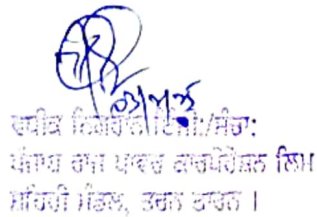 ਵਧੀਕ ਨਿਗਰਾਨ ਇੰਜੀ:/ਸੰਚਾ:
ਪੰਜਾਬ ਰਾਜ ਪਾਵਰ ਕਾਰਪੋਰੇਸ਼ਨ ਲਿਮ
ਸ਼ਹਿਰੀ ਮੰਡਲ, ਤਰਨ ਤਾਰਨ ।